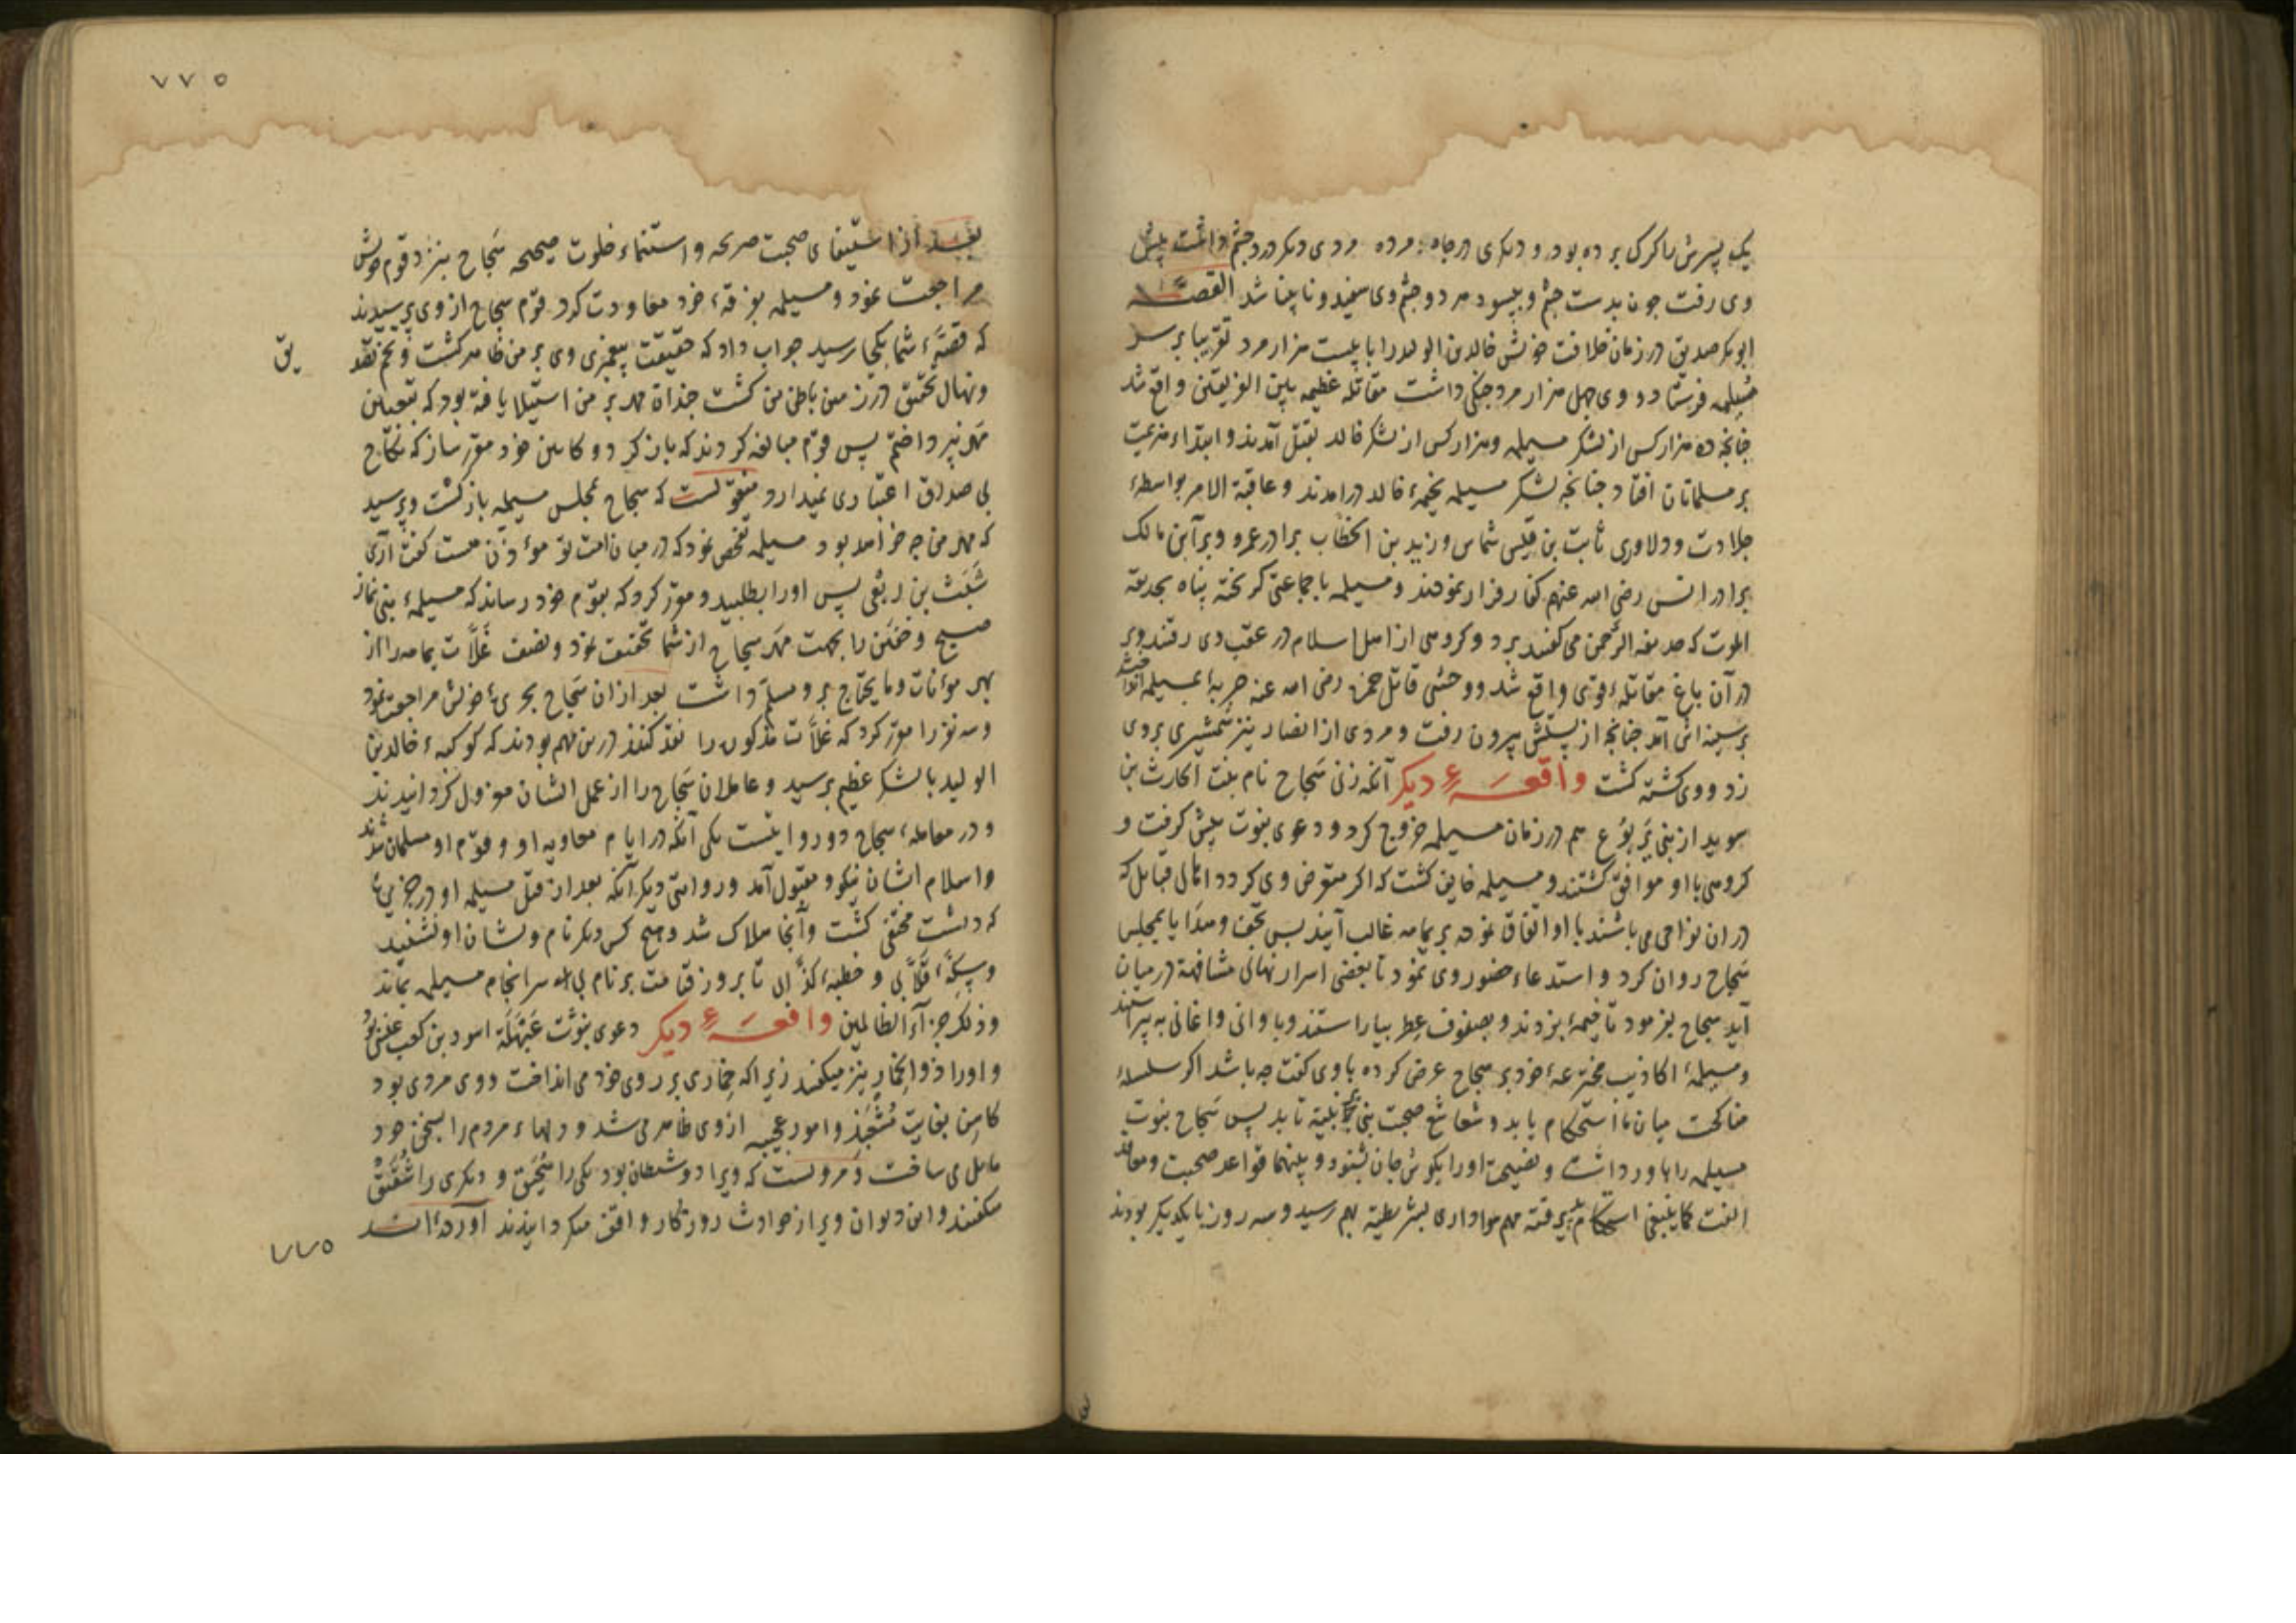 یک پسرش را کرک برده بود و دیکری در چاه مرده مردی دیکر درد چشم داشت پیش
وی رفت چون بدست چشم ویسود هر دو چشم وی سفید و نابینا شد القصه
ابوبکر صدیق در زمان خلافت خویش خالد بن الولید را با بیست هزار مرد تقریبا بر سر
مسیلمه فرستاد و وی چهل هزار مرد جنکی داشت مقاتله عظیمه بین الفریقین واقع شد
چنانچه ده هزار کس از لشکر مسیلمه و هزار کس از لشکر خالد بقتل آمدند و ابتداء هزیمت
بر مسلمانان افتاد چنانچه لشکر مسیلمه بخیمهٔ خالد درامدند و عاقبة الامر بواسطهٔ
جلادت و دلاوری ثابت بن قیس شماس و زید بن الخطاب برادر عمر و برآ ابن مالک
برادر انس رضی الله عنهم کفار فرار نمودند و مسیلمه با جماعتی کریخته پناه بحدیقة
الموت که حدیقه الرحمن می کفتند برد و کروهی از اهل اسلام در عقب وی رفتند و بر
در آن باغ مقاتلهٔ قوی واقع شد و وحشی قاتل حمزه رضی الله عنه حربهٔ بمسیلمه انداخت
بر سینه اش آمد چنانچه از پشتش بیرون رفت و مردی از انصار نیز شمشیری بر وی
زد و وی کشته کشت واقعهٔ دیکر آنکه زنی سجاح نام بنت الحارث بن
سوید از بنی یربوع هم در زمان مسیلمه خروج کرد و دعوی نبوت پیش کرفت و
کروهی با او موافق کشتند و مسیلمه خایف کشت که اکر متعرض وی کردد اهالی قبایل که
در ان نواحی می باشند با او اتفاق نموده بر یمامه غالب آیند پس تحف و هدایا بمجلس
سجاح روان کرد و استدعاء حضور وی نمود تا بعضی اسرار نهانی مشافهة در میان
آید سجاح بفرمود تا خیمهٔ بزدند و بصنوف عطر بیاراستند و باوانی و اغانی به پیراستند
و مسیلمهٔ اکاذیب مخترعهٔ خود بر سجاح عرض کرده با وی کفت چه باشد اکر سلسلهٔ
مناکحت میان ما استحکام یابد و شعاشع صحبت بنی بر نبیّه تابد پس سجاح نبوت
مسیلمه را باور داشت و نصیحت او را بکوش جان بشنود و بینهما قواعد صحبت و معاقد
الفت کما ینبغی استحکام پذیرفته مهم هواداری بشرطیه بهم رسید و سه روز با یکدیکر بودند
۷۷۵
بعد از استیفای صحبت صریحه و استنماء خلوت صحیحه سجاح بنزد قوم خویش
مراجعت نمود و مسیلمه بفرقهٔ خود معاودت کرد قوم سجاح از وی پرسیدند
که قصهٔ شما بکجا رسید جواب داد که حقیقت پیغمبری وی بر من ظاهر کشت و تخم تصد
یق
ونهال تحقق در زمین باطن من کشت چنان مهر بر من استیلا یافته بود که بتعیین
مهر نپرداختم پس قوم مبالغه کردند که باز کرد و کابین خود مقرر ساز که نکاح
بی صداق اعتباری نمیدارد منقولست که سجاح بمجلس مسیلمه باز کشت و پرسید
که مهر من چه خواهد بود مسیلمه تفحص نمود که در میان امت تو موءذن هست کفت آری
شبث بن ربعی پس او را بطلبید و مقرر کرد که بقوم خود رساند که مسیلمهٔ بنی نماز
صبح و خفتن را بجهت مهر سجاح از شما تخفیف نمود و نصف غلات یمامه را از
بهر موءنات و مایحتاج بر و مسلم داشت بعد از ان سجاح بحری ٔ خویش مراجعت نمود
و سه نفر را مقرر کرد که غلات مذکوره را نقد کنند درین مهم بودند که کوکبهٔ خالد بن
الولید با لشکر عظیم برسید و عاملان سجاح را از عمل ایشان معزول کردانیدند
و در معاملهٔ سجاح دو روایتست یکی آنکه در ایام معاویه او و قوم او مسلمان شدند
و اسلام ایشان نیکو و مقبول آمد و روایتی دیکر آنکه بعد از قتل مسیلمه او در جزیرهٔ
که داشت مختفی کشت و آنجا هلاک شد و هیچ کس دیکر نام و نشان او نشنید
و سکّهٔ قلابی و خطبهٔ کذابی تا بروز قیامت بر نام بی سرانجام مسیلمه بماند
وذلک جزآء الظالمین واقعهٔ دیکر دعوی نبوت عبهلة اسود بن کعب عنسی بود
و او را ذو الخمار نیز میکفتند زیرا که خماری بر روی خود می انداخت و وی مردی بود
کاهن بغایت مشعبذ و امور عجیبه از وی ظاهر می شد و دلهاء مردم را بسخن خود
مایل می ساخت و مرویست که ویرا دو شیطان بود یکی را سحیق و دیکری را شقیق
میکفتند و این دیوان ویرا از حوادث روزکار واقف میکردانیدند آورده اند
۷۷۵